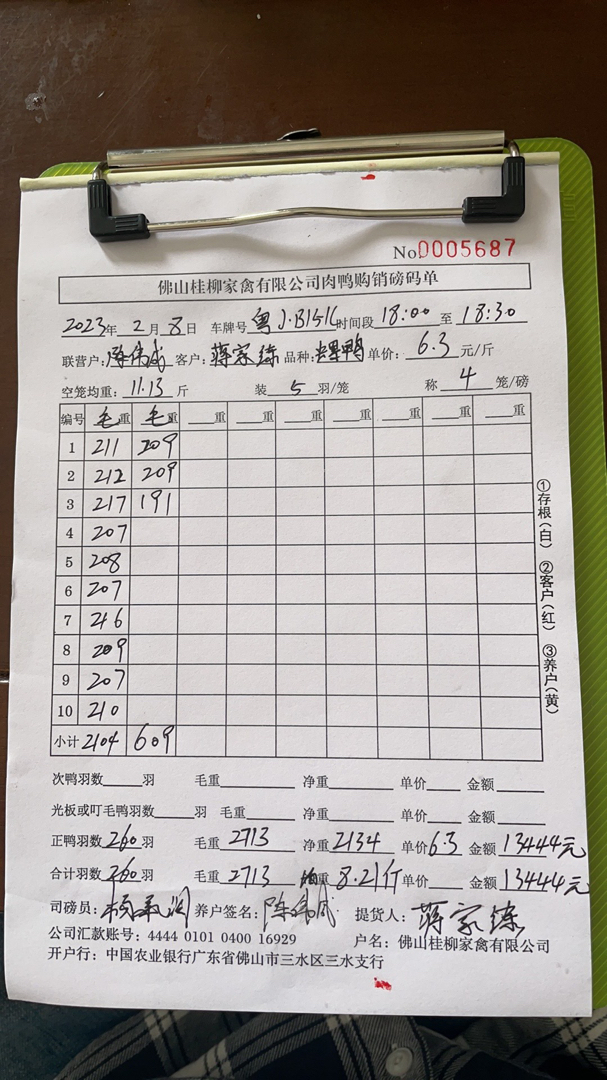 No 0005687
佛山桂柳家禽有限公司肉鸭购销磅码单
2023年 2月 8日 车牌号 粤 时间段 18:00 至 18:30
联营户: 客户: 蒋家练 品种: 单价: 6.3 元/斤
空笼均重: 11.13 斤 装 5 羽/笼 称 4 笼/磅
编号 毛重 毛重 重 重 重 重 重 重 重
1 211 209
2 212 209
3 217 191
4 207
5 208
6 207
7 216
8 209
9 207
10 210
小计 2104 609
①存根(白) ②客户(红) ③养户(黄)
次鸭羽数 羽 毛重 净重 单价 金额
光板或叮毛鸭羽数 羽 毛重 净重 单价 金额
正鸭羽数 260 羽 毛重 2713 净重 2134 单价 6.3 金额 13444元
合计羽数 260 羽 毛重 2713 重 8.21斤 单价 金额 13444元
司磅员: 养户签名: 提货人: 蒋家练
公司汇款账号: 4444 0101 0400 16929 户名: 佛山桂柳家禽有限公司
开户行: 中国农业银行广东省佛山市三水区三水支行